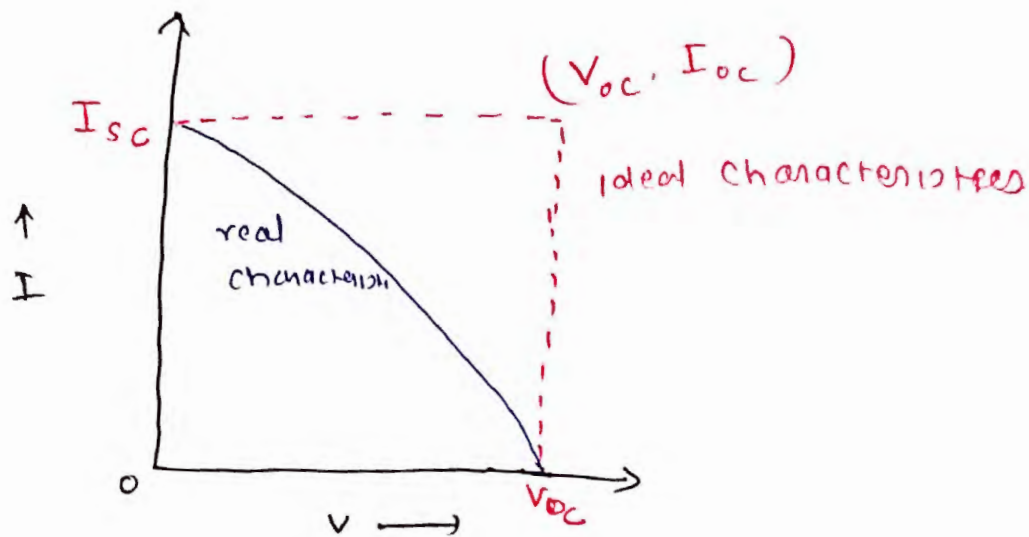 (V_oc, I_oc)
I_sc
ideal characteristics
real
characteristic
↑
I
0
V_oc
V ⟶